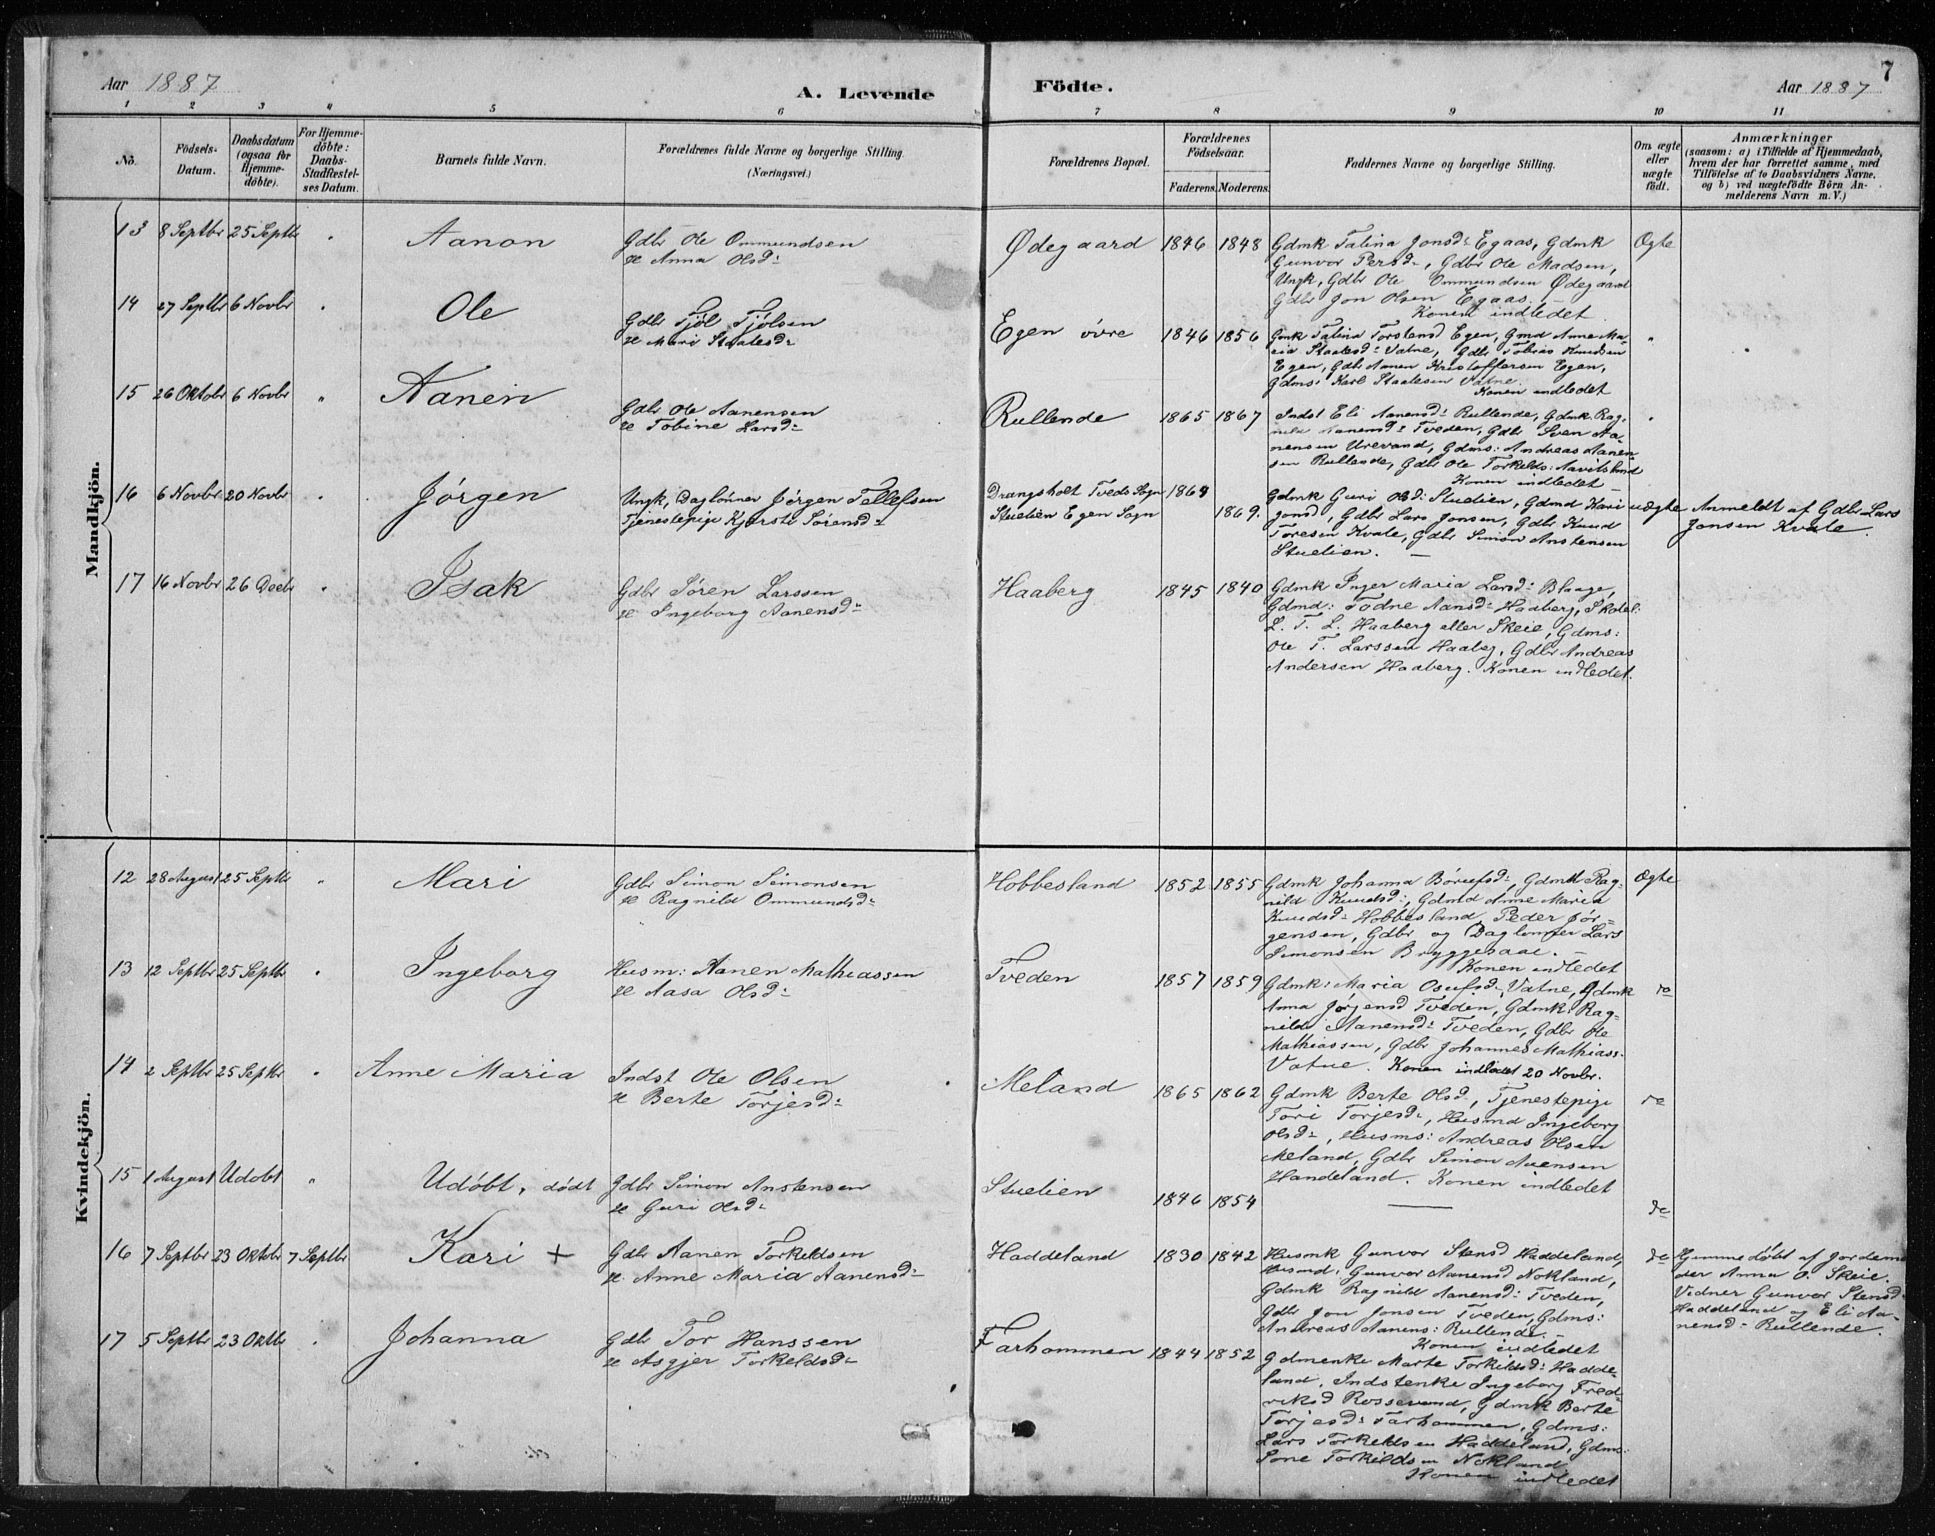 7
Aar 1887
A. Levende
Födte.
Aar 1887
1 2 3 4 5 6 7 8 9 10 11
No.
Födsels-
Datum.
Daabsdatum
(ogsaa for
Hjemme-
döbte).
For Hjemme-
döbte:
Daabs-
Stadfæstel-
ses Datum.
Barnets fulde Navn.
Forældrenes fulde Navne og borgerlige Stilling.
(Næringsvei.)
Forældrenes Bopæl.
Forældrenes
Födselsaar.
Faderens. Moderens.
Faddernes Navne og borgerlige Stilling.
Om ægte
eller
uægte
födt.
Anmærkninger
(saasom: a) i Tilfælde af Hjemmedaab,
hvem der har forrettet samme, med
Tilföielse af to Daabsvidners Navne.
og b) ved uægtefödte Börn An-
melderens Navn m. V.)
Mandkjön.
13 8 Septbr 25 Septbr " Aanon
Gdbr Ole Ommundsen
H. Anna Olsd:
Ødegaard 1846 1848
Gdmk Talina Jonsd: Egaas, Gdmk
Gunvor Persd:, Gdbr Ole Madsen,
Ungk, Gdbr Ole Ommundsen Ødegaard
Gdbr Jon Olsen Egaas. —
Konen indledet
Ægte
14 27 Septbr 6 Novbr " Ole
Gdbr Tjöl Tjölsen
H. Mari Staalesd:
Egen övre 1846 1856
Gmk Talina Torstensd Egen, Gmd Anne Ma-
ria Staalesd: Vatne, Gdbr Tobias Knudsen
Egen, Gdbr Aanen Kristoffersen Egen,
Gdms: Karl Staalesen Vatne.
Konen indledet
"
15 26 Oktobr 6 Novbr " Aanen
Gdbr Ole Aanensen
H. Tobine Larsd:
Rullende 1865 1867
Indst Eli Aanensd: Rullende, Gdmk Rag-
nild Aanensd: Tveden, Gdbr Sven Aa-
nensen Urevand, Gdms: Andreas Aanen-
sen Rullende, Gdbr Ole Torkelds: Aavitsland
Konen indledet
"
16 6 Novbr 20 Novbr " Jörgen
Ungk, Daglönner Jörgen Tellefsen
Tjenestepige Kjersti Sörensd:
Drangsholt Tveds Sogn 1864
Stuelien Egen Sogn 1869.
Gdmk Guri Olsd: Stuelien, Gdmd Kari
Jonsd, Gdbr Lars Jonsen, Gdbr Knud
Toresen Kvale, Gdbr Simon Anstensen
Stuelien. —
uægte
Anmeldt af Gdbr Lars
Jonsen Kvale.
17 16 Novbr 26 Decbr " Isak
Gdbr Sören Larssen
H. Ingeborg Aanensd:
Haaberg 1845 1840
Gdmk Inger Maria Larsd: Blaage,
Gdmd: Todne Aansd: Haaberg, Skolel:
L. T. L. Haaberg eller Skeie, Gdms:
Ole T. Larssen Haabeg, Gdbr Andreas
Andersen Haaberg. Konen indledet.
Kvindekjön.
12 28 August 25 Septbr " Mari
Gdbr Simon Simonsen
H. Ragnild Ommundsd:
Hobbesland 1852 1855
Gdmk Johanna Börufsd: Gdmk Rag-
nild Knudsd:, Gdmd Anne Maria
Knudsd: Hobbesland, Peder Jör-
gensen, Gdbr og Daglönner Lars
Simonsen Bryggesaae. —
Konen indledet
Ægte
13 12 Septbr 25 Septbr " Ingeborg
Husm: Aanen Mathiassen
H. Aasa Olsd:
Tveden 1857 1859
Gdmk: Maria Osufsd: Vatne, Gdmk
Anna Jörgensd Tveden, Gdmk: Rag-
nild Aanensd: Tveden, Gdbr Ole
Mathiassen, Gdbr Johannes Mathiass:
Vatne. Konen indledet 20 Novbr.
do
14 2 Septbr 25 Septbr " Anne Maria
Indst Ole Olsen
H. Berte Torjesd:
Meland 1865 1862
Gdmk Berte Olsd:, Tjenestepige
Tori Torjesd:, Husmd Ingeborg
Olsd:, Husms: Andreas Olsen
Meland, Gdbr Simon Avensen
Handeland. Konen indledet
do
15 1 August Udobt " Udöbt, död
Gdbr Simon Anstensen
H. Guri Olsd:
Stuelien 1846 1854
———
do
16 7 Septbr 23 Oktobr 7 Septbr Kari +
Gdbr Aanen Torkeldsen
H. Anne Maria Aanensd:
Haddeland 1830 1842
Husmk Gunvor Stensd Haddeland,
Husmd: Gunvor Aanensd Nokland,
Gdmk Ragnild Aanensd: Tveden,
Gdbr Jon Jonsen Tveden, Gdms:
Andreas Aanens: Rullende. —
Konen indledet
do
Hjemmedöbt af Jordemo
der Anna O. Skeie.
Vidner Gunvor Stensd:
Haddeland og Eli Aa-
nensd: Rullende.
17 5 Septbr 23 Oktbr " Johanna
Gdbr Tor Hanssen
H. Asgjer Torkeldsd:
Farhommen 1844 1852
Gdmenke Marte Torkildsd: Hadde-
land, Indstenke Ingeborg Fred-
riksd Rossevand, Gdmk Berte
Torjesd: Farhommen, Gdms:
Lars Torkeldsen Haddeland, Gdms:
Sone Torkildsen Nokland
Konen indledet